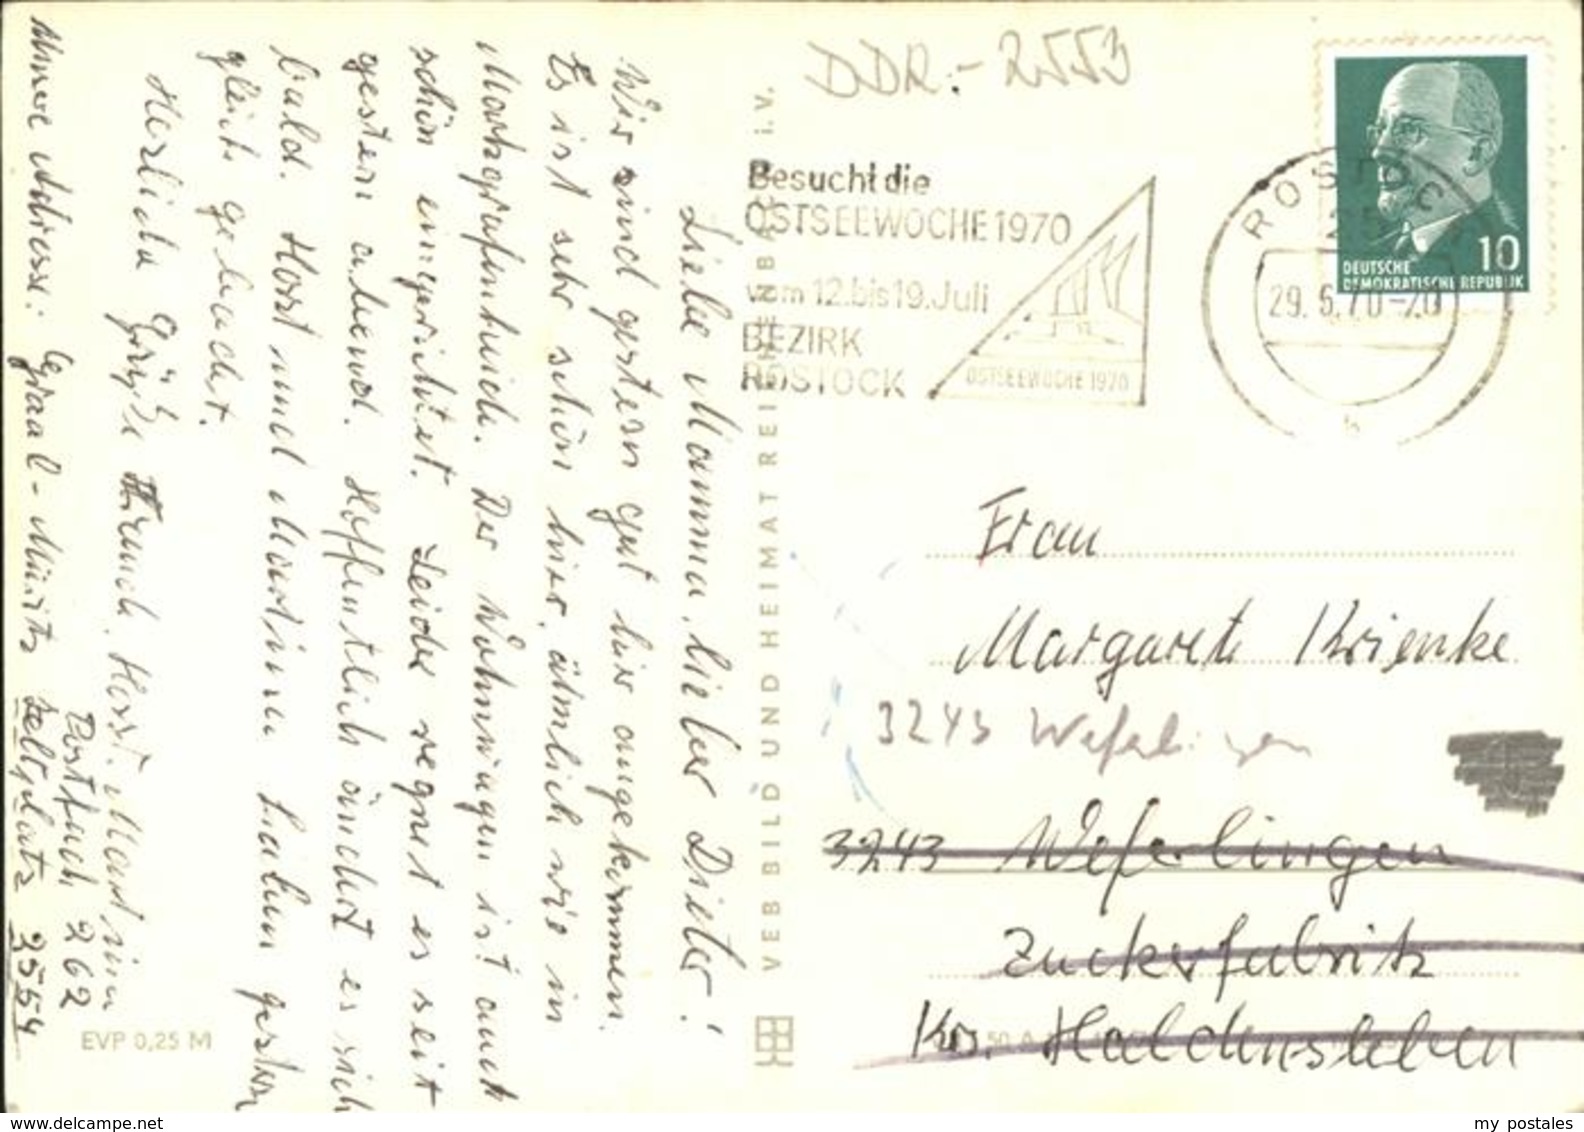 DDR.- 2553
Besucht die
OSTSEEWOCHE 1970
vom 12. bis 19. Juli
BEZIRK
ROSTOCK
OSTSEEWOCHE 1970
ROSTOCK
25
29. 6. 70-20
b
10
DEUTSCHE
DEMOKRATISCHE REPUBLIK
Liebe Mamma, lieber Dieter!
Wir sind gestern gut hier angekommen.
Es ist sehr schön hier, ähnlich wie in
Markgrafenheide. Der Wohnwagen ist auch
schön eingerichtet. Leider regnet es seit
gestern abend. Hoffentlich ändert es sich
bald. Horst und Martina haben gestern
gleich gebadet.
Herzliche Grüße Horst, Martina
Unsere Adresse: Graal-Müritz Zeltplatz 2554
Postfach 262
VEB BILD UND HEIMAT REICHENBACH i. V.
EVP 0,25 M
Frau
Margarete Krienke
3243 Weferlingen
3243 Weferlingen
Zuckerfabrik
Krs. Haldensleben
www.delcampe.net
my_postales